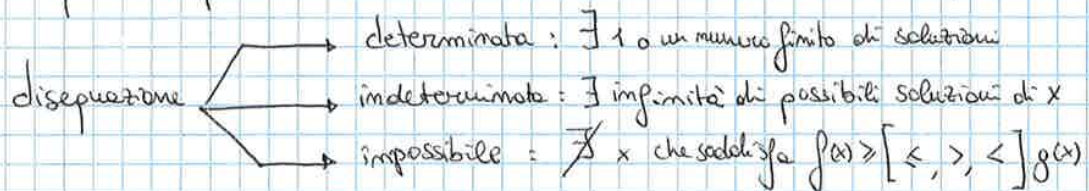 determinata : ∃ 1 o un numero finito di soluzioni
disequazione
indeterminata : ∃ infinità di possibili soluzioni di x
impossibile : ∄ x che soddisfa f(x) ≥ [≤, >, <] g(x)